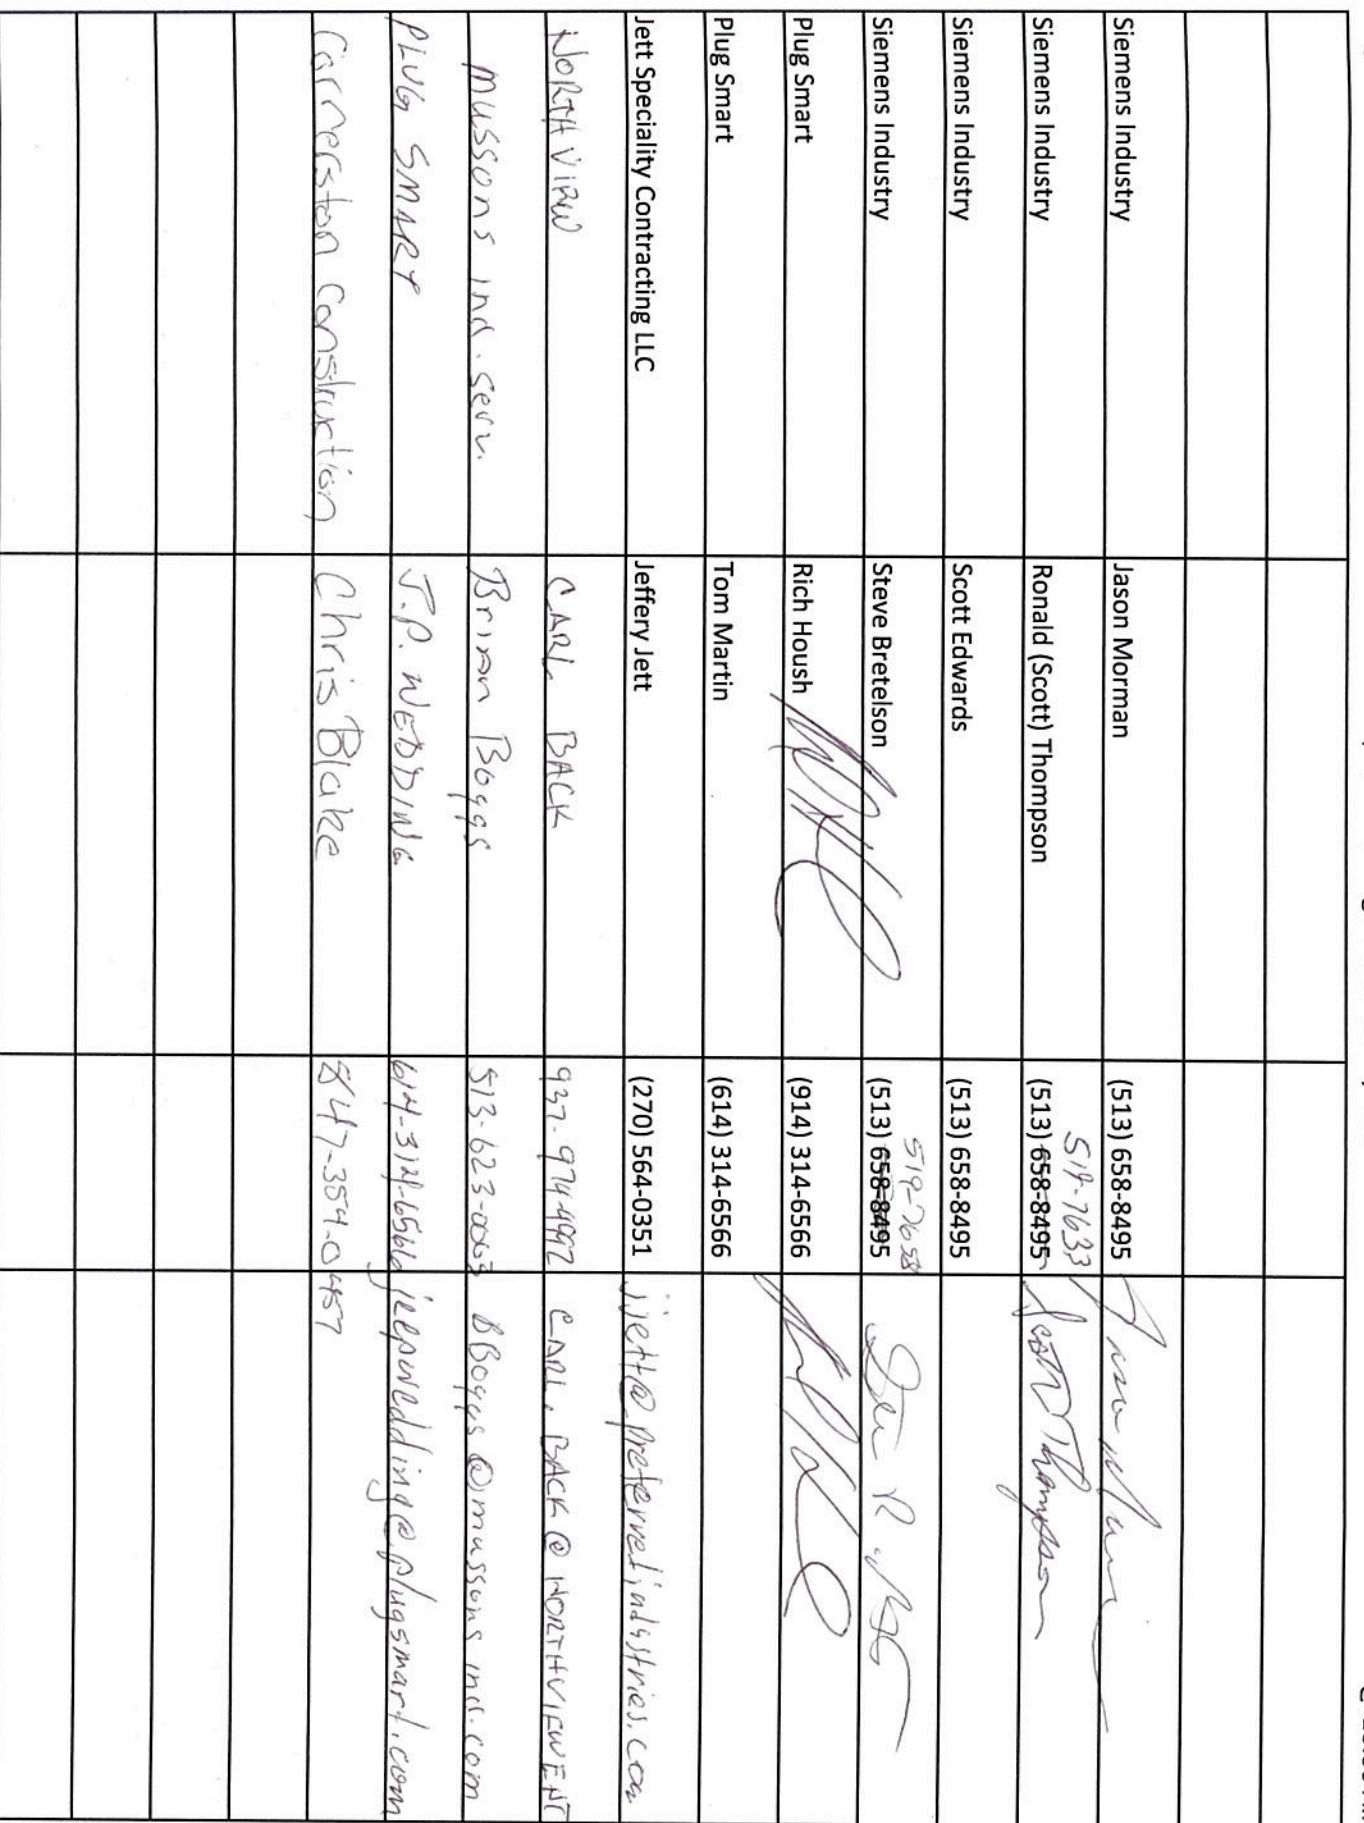 Siemens Industry Jason Morman (513) 658-8495
519-7633
Siemens Industry Ronald (Scott) Thompson (513) 658-8495 Scott Thompson
Siemens Industry Scott Edwards (513) 658-8495
519-7658
Siemens Industry Steve Bretelson (513) 658-8495
Plug Smart Rich Housh (914) 314-6566
Plug Smart Tom Martin (614) 314-6566
Jett Speciality Contracting LLC Jeffery Jett (270) 564-0351 jjett@preferredindustries.com
NORTHVIEW CARL BACK 937-974-4992 CARL.BACK@NORTHVIEWENT
mussons ind. serv. Brian Boggs 513-623-0003 BBoggs@mussons ind.com
PLUG SMART J.P. WEDDING 614-314-6566 jeepwedding@plugsmart.com
Cornerston Construction Chris Blake 847-354-0457